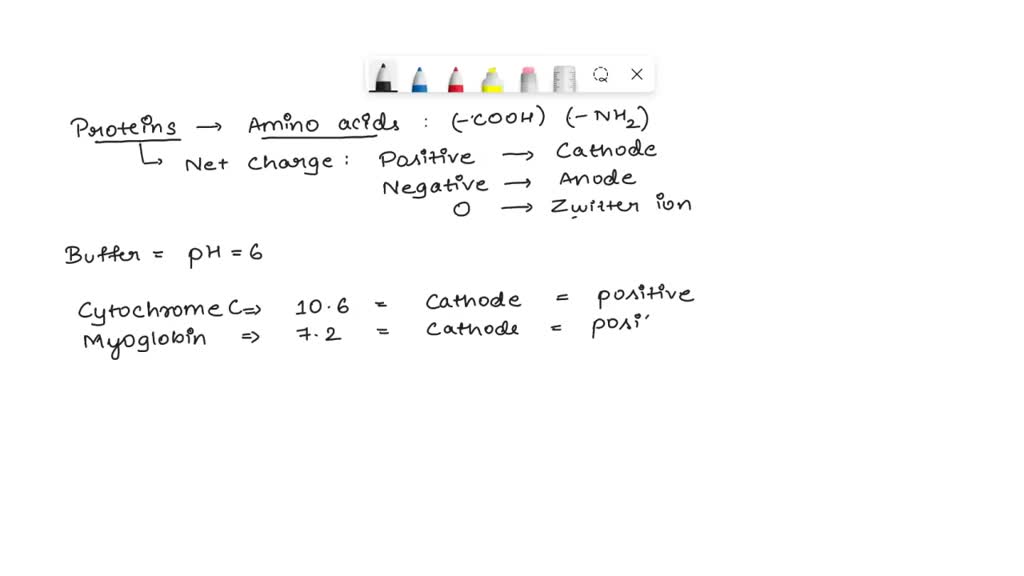 Proteins → Amino acids : (-COOH) (-NH2)
↳ Net charge : Positive → Cathode
Negative → Anode
0 → Zwitter ion
Buffer = pH = 6
Cytochrome C => 10.6 = Cathode = positive
Myoglobin => 7.2 = Cathode = posi